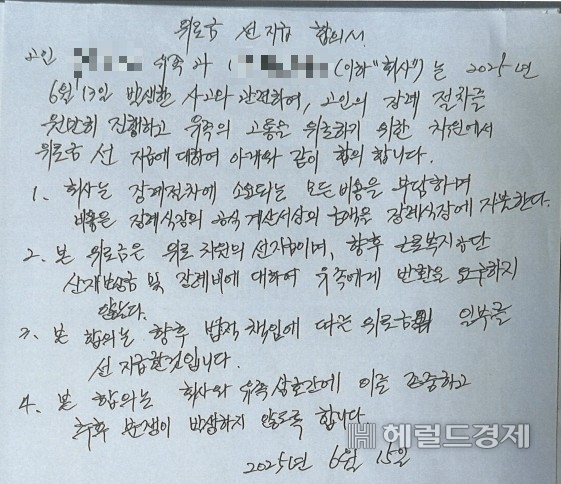 위로금 선지급 합의서
고인 유족과 (이하 "회사")는 2025년
6월 13일 발생한 사고와 관련하여, 고인의 장례 절차를
원만히 진행하고 유족의 고통을 위로하기 위한 차원에서
위로금 선 지급에 대하여 아래와 같이 합의 합니다.
1. 회사는 장례절차에 소요되는 모든 비용을 부담하며
비용은 장례식장의 공식 계산서상의 금액을 장례식장에 지불한다.
2. 본 위로금은 위로 차원의 선지급이며, 향후 근로복지공단
산재보상금 및 장례비에 대하여 유족에게 반환을 요구하지
않는다.
3. 본 합의는 향후 법적 책임에 따른 위로금의 일부를
선 지급한것입니다.
4. 본 합의는 회사와 유족 상호간에 이를 존중하고
추후 분쟁이 발생하지 않도록 합니다
헤럴드경제
2025년 6월 15일